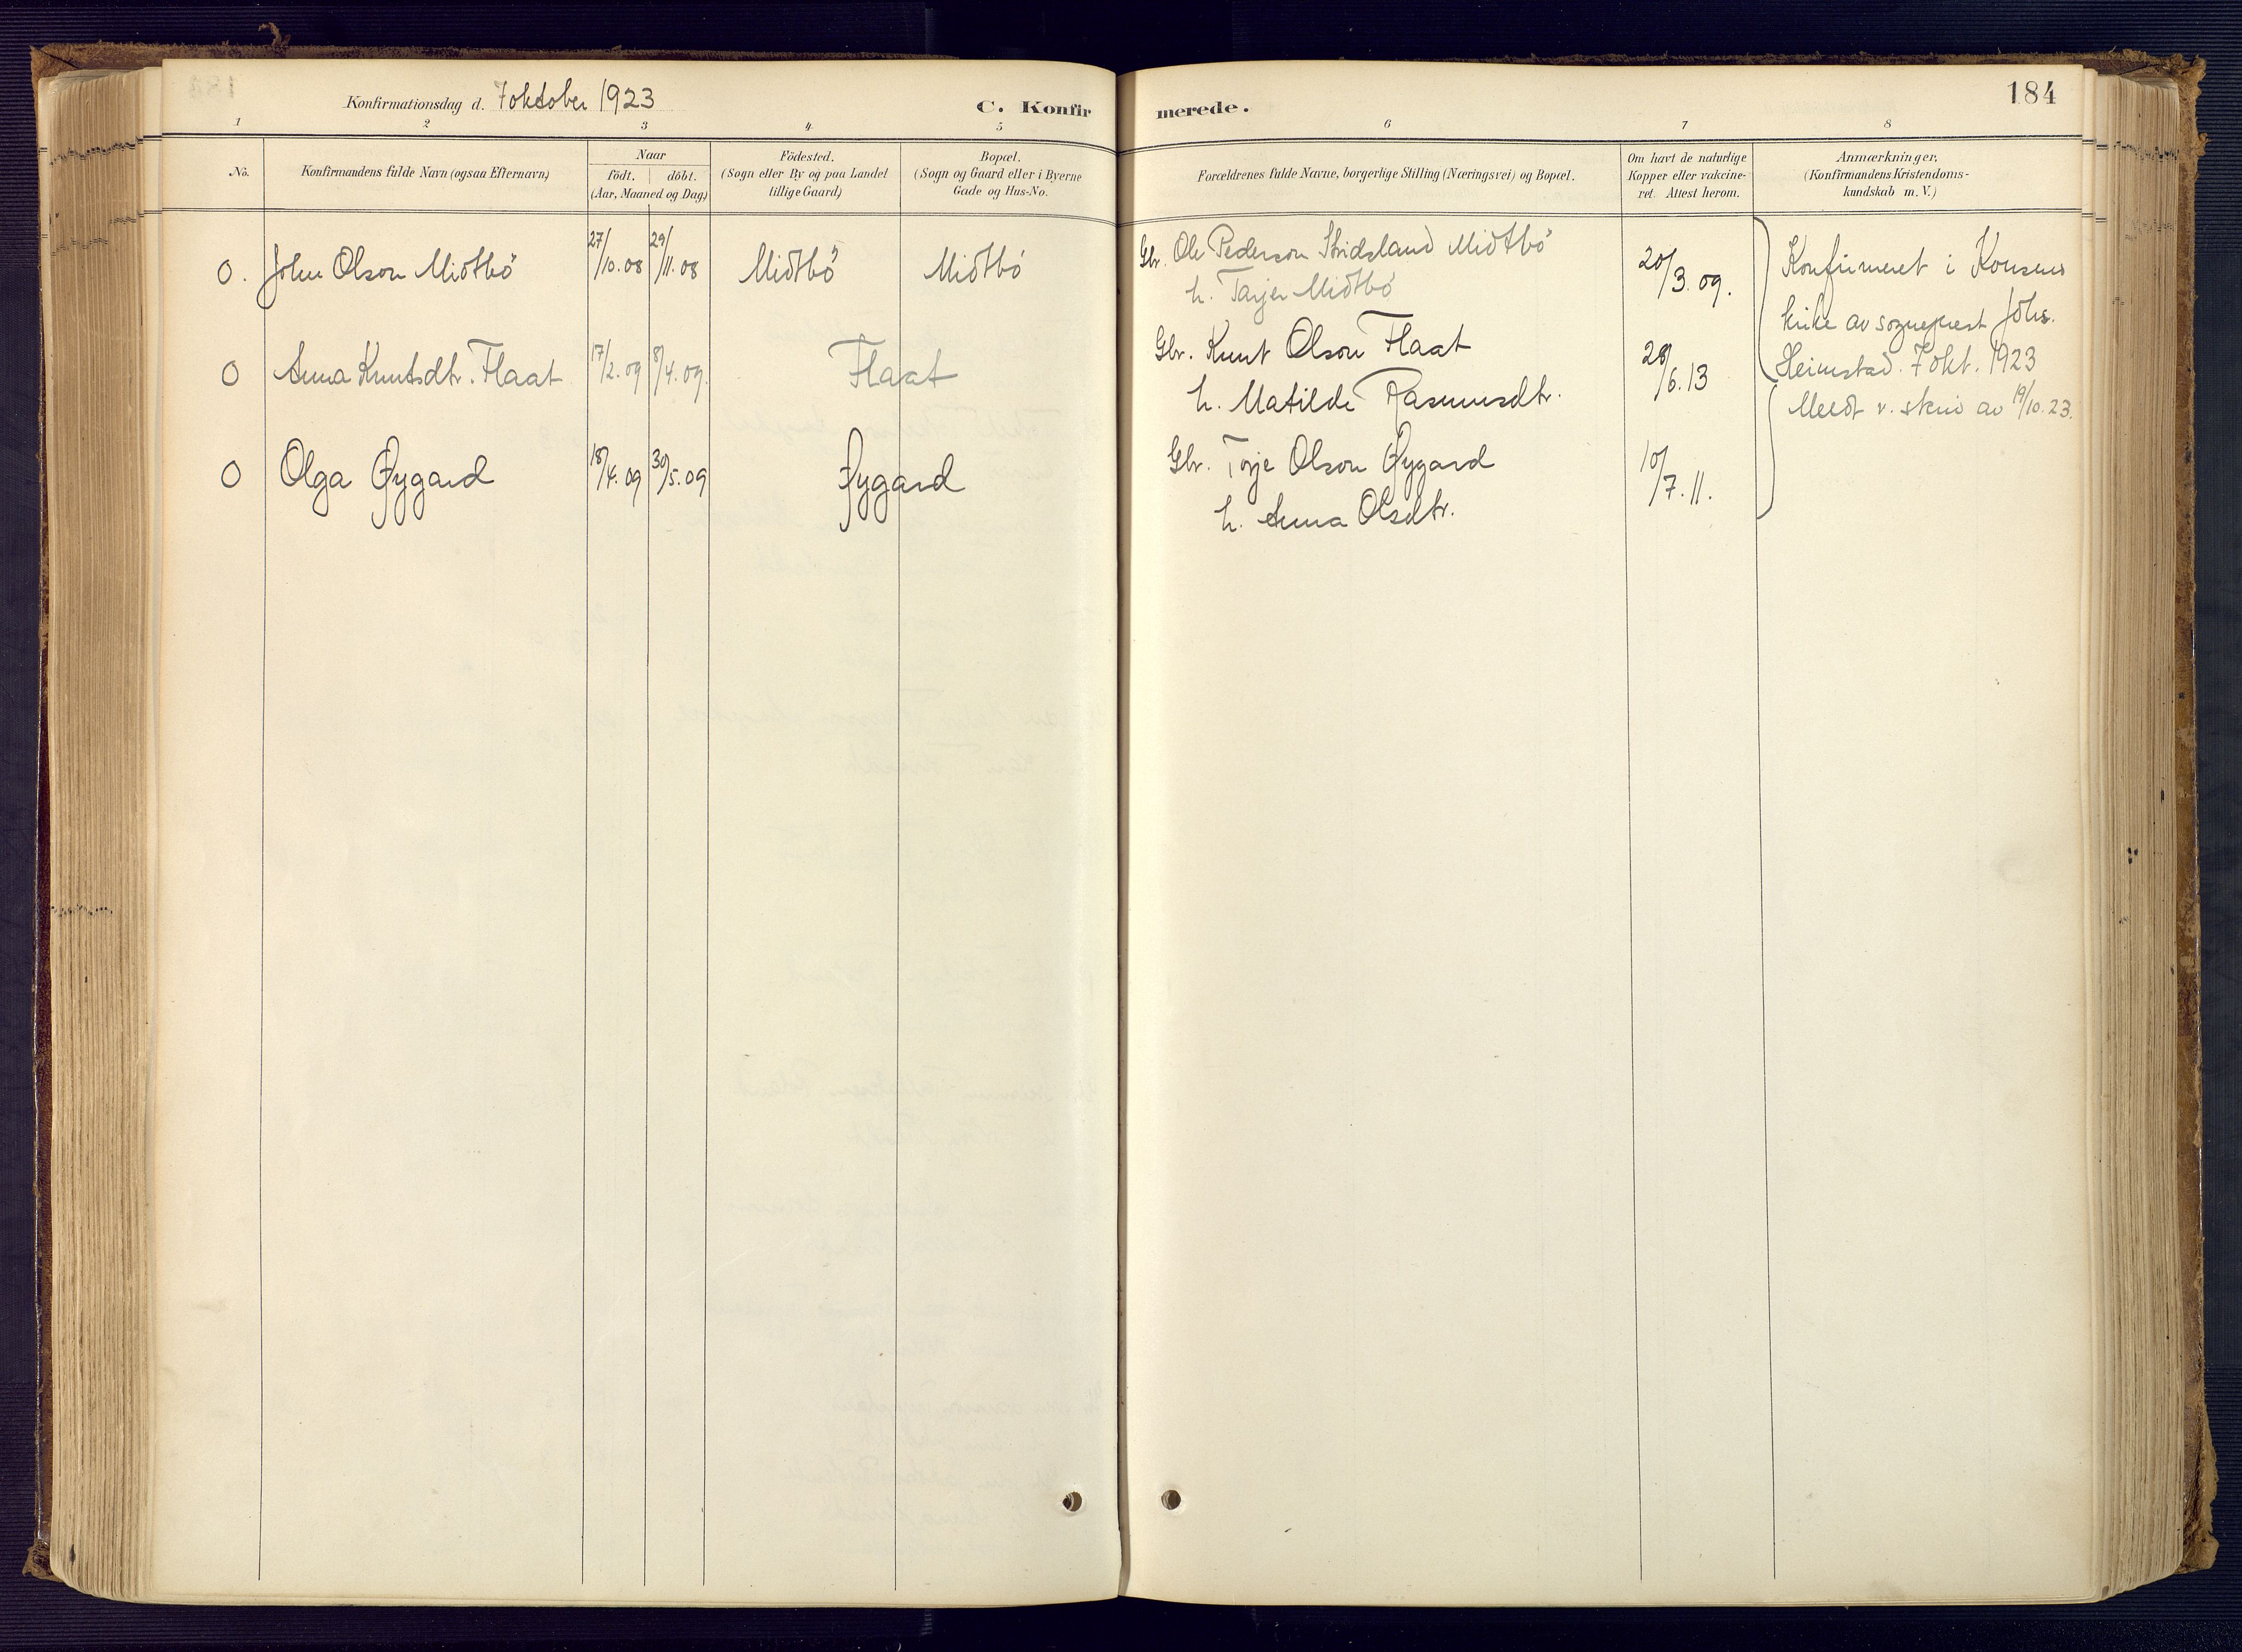 184
Konfirmationsdag d. 7 oktober 1923
C. Konfirmerede.
1 2 3 4 5 6 7 8
No.
Konfirmandens fulde Navn (ogsaa Efternavn)
Naar
födt. döbt.
(Aar, Maaned og Dag)
Födested.
(Sogn eller By og paa Landet
tillige Gaard)
Bopæl.
(Sogn og Gaard eller i Byerne
Gade og Hus-No.
Forældrenes fulde Navne, borgerlige Stilling (Næringsvei) og Bopæl.
Om havt de naturlige
Kopper eller vakcine-
ret. Attest herom.
Anmærkninger.
(Konfirmandens Kristendoms-
kundskab m. V.)
0. John Olson Midtbö 27/10.08 29/11.08 Midtbö Midtbö Gbr. Ole Pederson Stridsland Midtbö 20/3.09.
h. Tarjer Midtbö
0 Anna Knutsdtr. Flaat 17/2.09 8/4.09. Flaat Gbr. Knut Olson Flaat 28/6.13
h. Matilde Rasmusdtr.
0 Olga Øygard 18/4.09 30/5.09 Øygard Gbr. Torje Olson Øygard 10/7.11.
h. Anna Olsdtr.
Konfirmeret i Konsmo
kirke av sogneprest Johs.
Heimstad. 7 okt. 1923
Meldt v. skriv av 19/10.23.